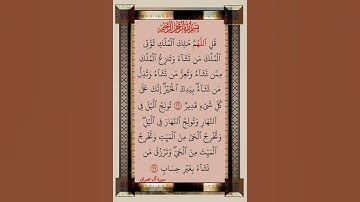 بسم الله الرحمن الرحيم
قُلِ ٱللَّهُمَّ مَٰلِكَ ٱلْمُلْكِ تُؤْتِى
ٱلْمُلْكَ مَن تَشَآءُ وَتَنزِعُ ٱلْمُلْكَ
مِمَّن تَشَآءُ وَتُعِزُّ مَن تَشَآءُ وَتُذِلُّ
مَن تَشَآءُ بِيَدِكَ ٱلْخَيْرُ إِنَّكَ عَلَىٰ
كُلِّ شَىْءٍ قَدِيرٌ ٢٦ تُولِجُ ٱلَّيْلَ فِى
ٱلنَّهَارِ وَتُولِجُ ٱلنَّهَارَ فِى ٱلَّيْلِ
وَتُخْرِجُ ٱلْحَىَّ مِنَ ٱلْمَيِّتِ وَتُخْرِجُ
ٱلْمَيِّتَ مِنَ ٱلْحَىِّ وَتَرْزُقُ مَن
تَشَآءُ بِغَيْرِ حِسَابٍ ٢٧
سورة آل عمران